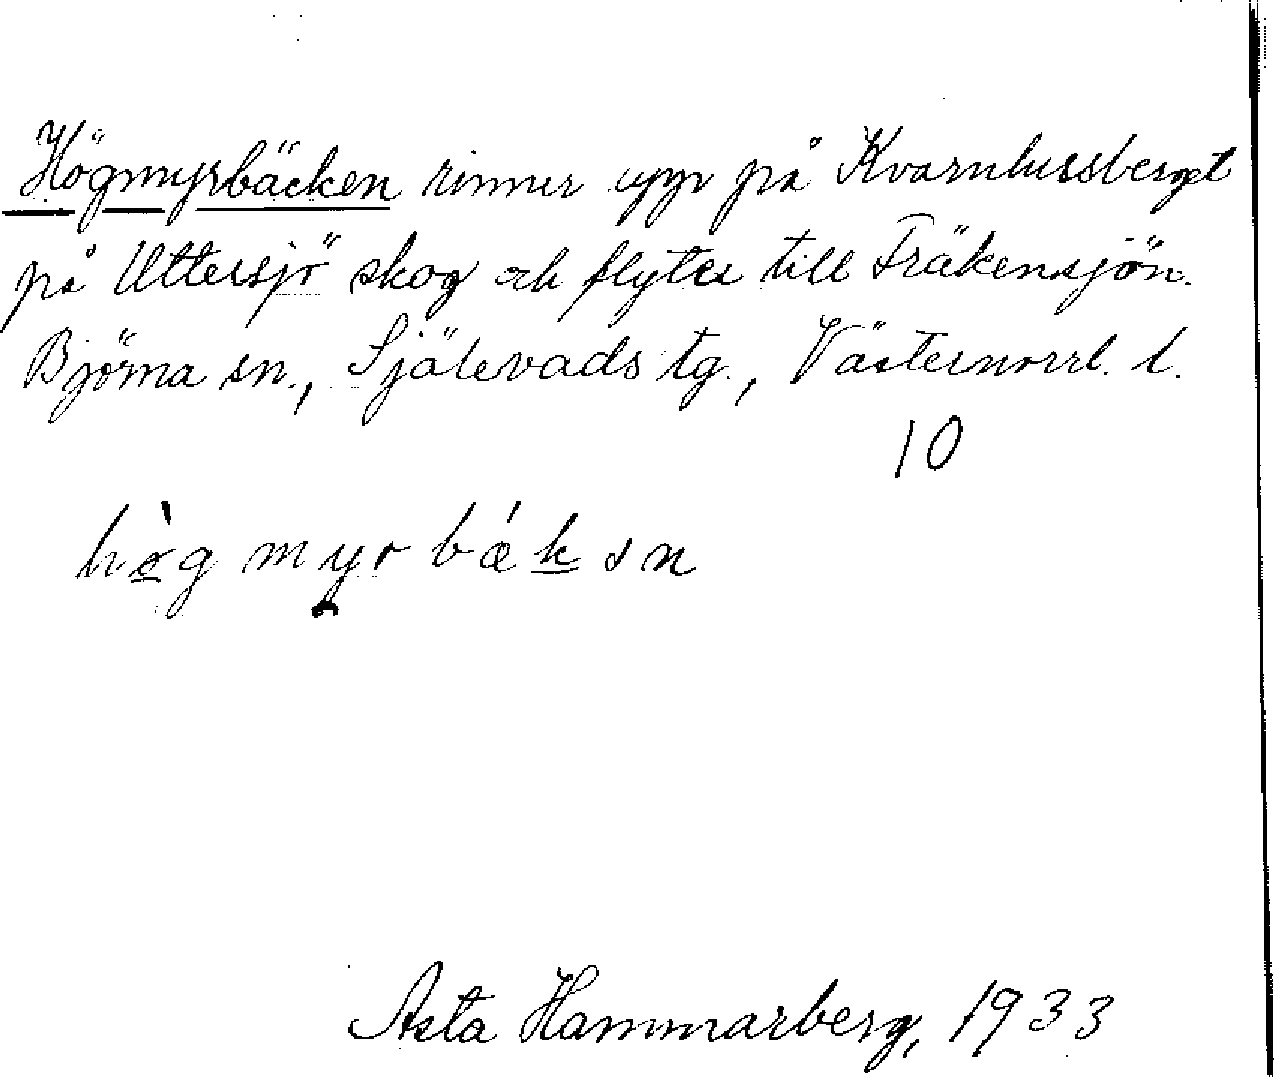 Högmyrbäcken rinner upp på Kvarnhussberget
på Uttersjö skog och flyter till Fräkensjön.
Björna sn., Själevads tg., Västernorrl. l.
10
Asta Hammarberg, 1933